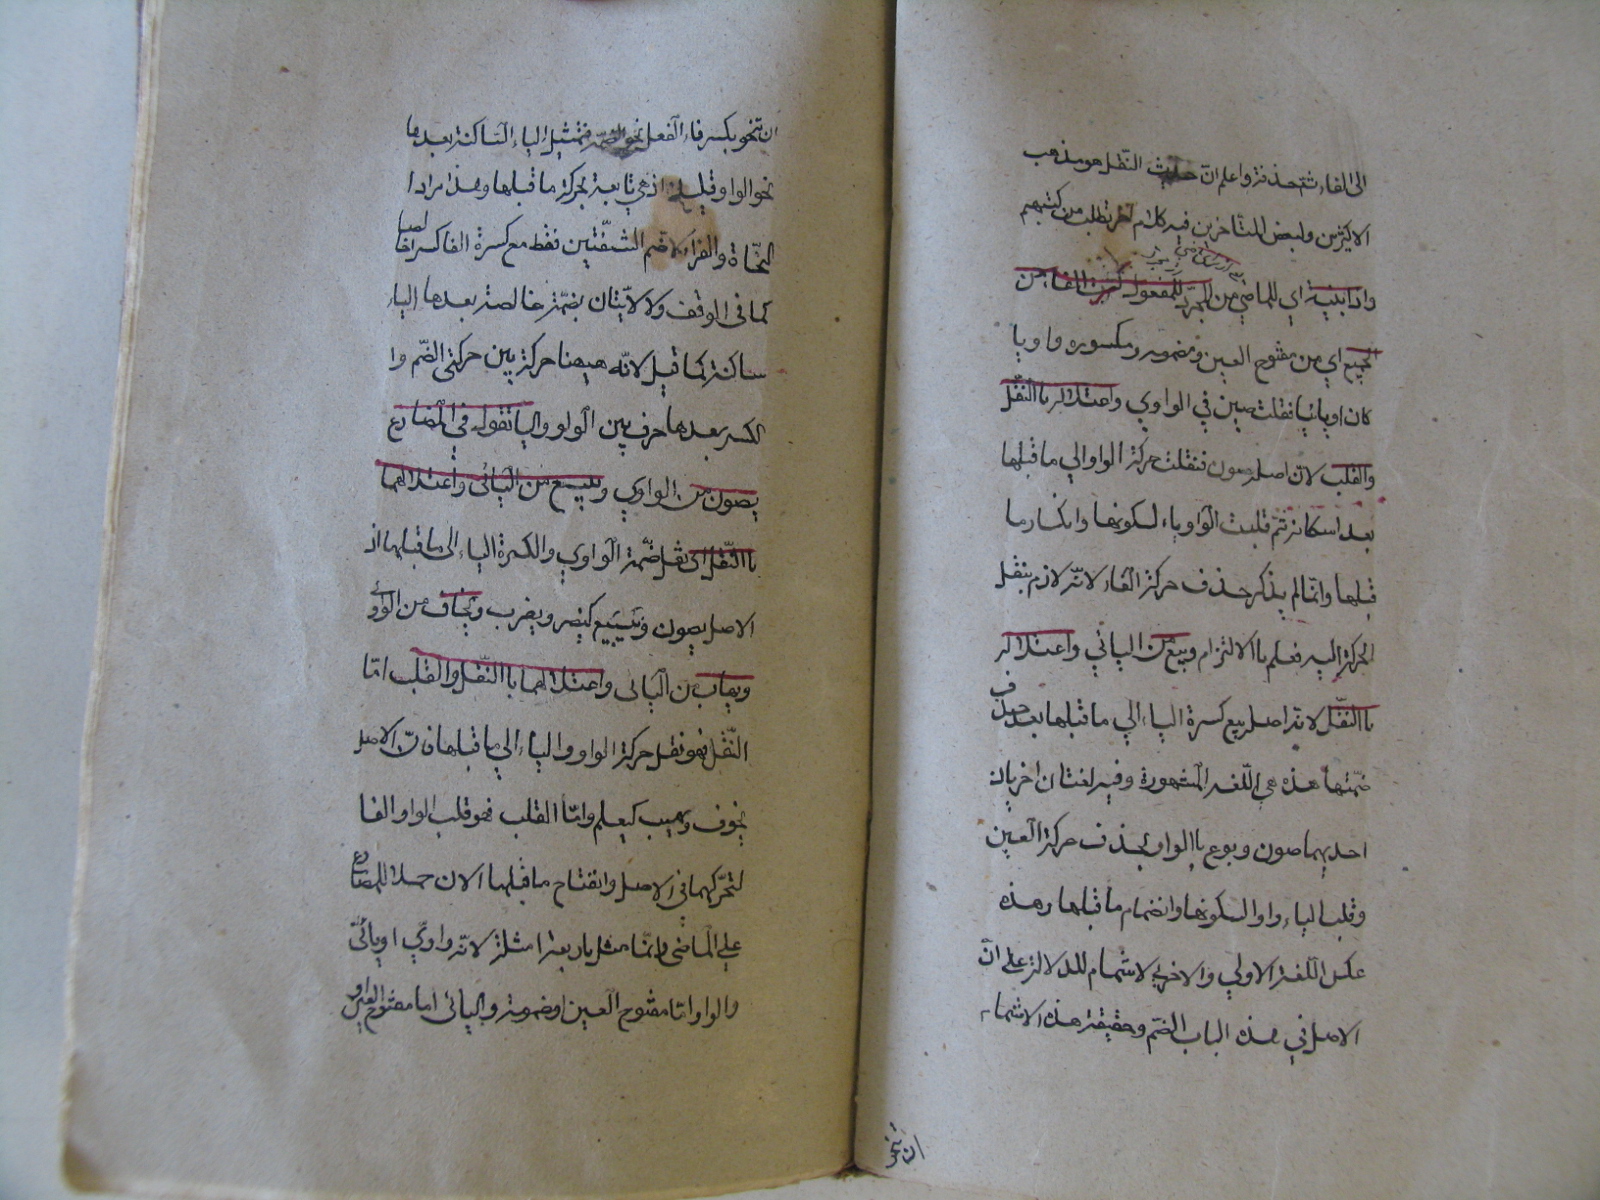 الى الفاء ثم حذفته واعلم ان حديث النّقل هو مذهب
الاكثرين ولبعض المتاخرين فيه كلام اخر تطلب من كتبهم
واذا بنيته اي الماضي من المجرّد للمفعول كسرت الفاء من
الجميع اي من مفتوح العين ومضمومه ومكسوره واويا
كان او يائيا فقلت صين في الواوي واعتلاله باالنّقل
والقلب لانّ اصله صون فنقلت حركة الواو الي ما قبلها
بعد اسكانه ثم قلبت الواو ياء لسكونها وانكسار ما
قبلها وانّما لم يذكر حذف حركة الفاء لانّه لازم بنقل
الحركة اليه فعلم باالالتزام وبيع من اليائي واعتلاله
باالنقّل لانّ اصله بيع كسرة الياء الي ما قبلها بعد حذف
ضمّتها هذه هي اللّغه المشهورة وفيه لغتان اخريان
احديهما صون وبوع باالواو بحذف حركة العين
وقلب الياء واوا لسكونها وانضمام ما قبلها وهذه
عكس اللّغة الاولي والاخري الاشمام للدلالة علي انّ
الاصل في هذه الباب الضّم وحقيقة هذه الاشمام
ان تنحو
ان تنحو بكسر فاء الفعل نحو الضمّة فتميل الياء السّاكنة بعدها
نحو الواو قليلا اذ هي تابعة لحركة ما قبلها وهذا مراد
النحّاة والقراء لا ضم الشفّتين فقط مع كسرة الفا كسرا خالصا
كما في الوقف ولا الاتيان بضمّة خالصة بعدها الياء
ساكنة كما قيل لانّه هيهنا حركة بين حركتي الضّم وا
لكسر بعدها حرف بين الواو واليا تقول في المضارع
يصون من الواوي ويبيع من اليائى واعتلالهما
باالنّقل اى نقل ضمّة الواوي والكسرة الياء الى ما قبلها اذ
الاصل يصون ويبيع كينصر ويضرب ويخاف من الواوى
ويهاب من اليائى واعتلالهما باالنّقل والقلب امّا
النّقل فهو نقل حركة الواو والياء الي ما قبلها فانّ الاصل
يخوف ويهيب كيعلم وامّا القلب فهو قلب الواو الفا
لتحرّكهما في الاصل وانفتاح ما قبلها الان حملا للمضارع
علي الماضى وانّما مثل باربعة امثلة لانّه واويّ او يائيّ
والواو امّا مفتوح العين او مضمومة واليائى اما مفتوح العين او